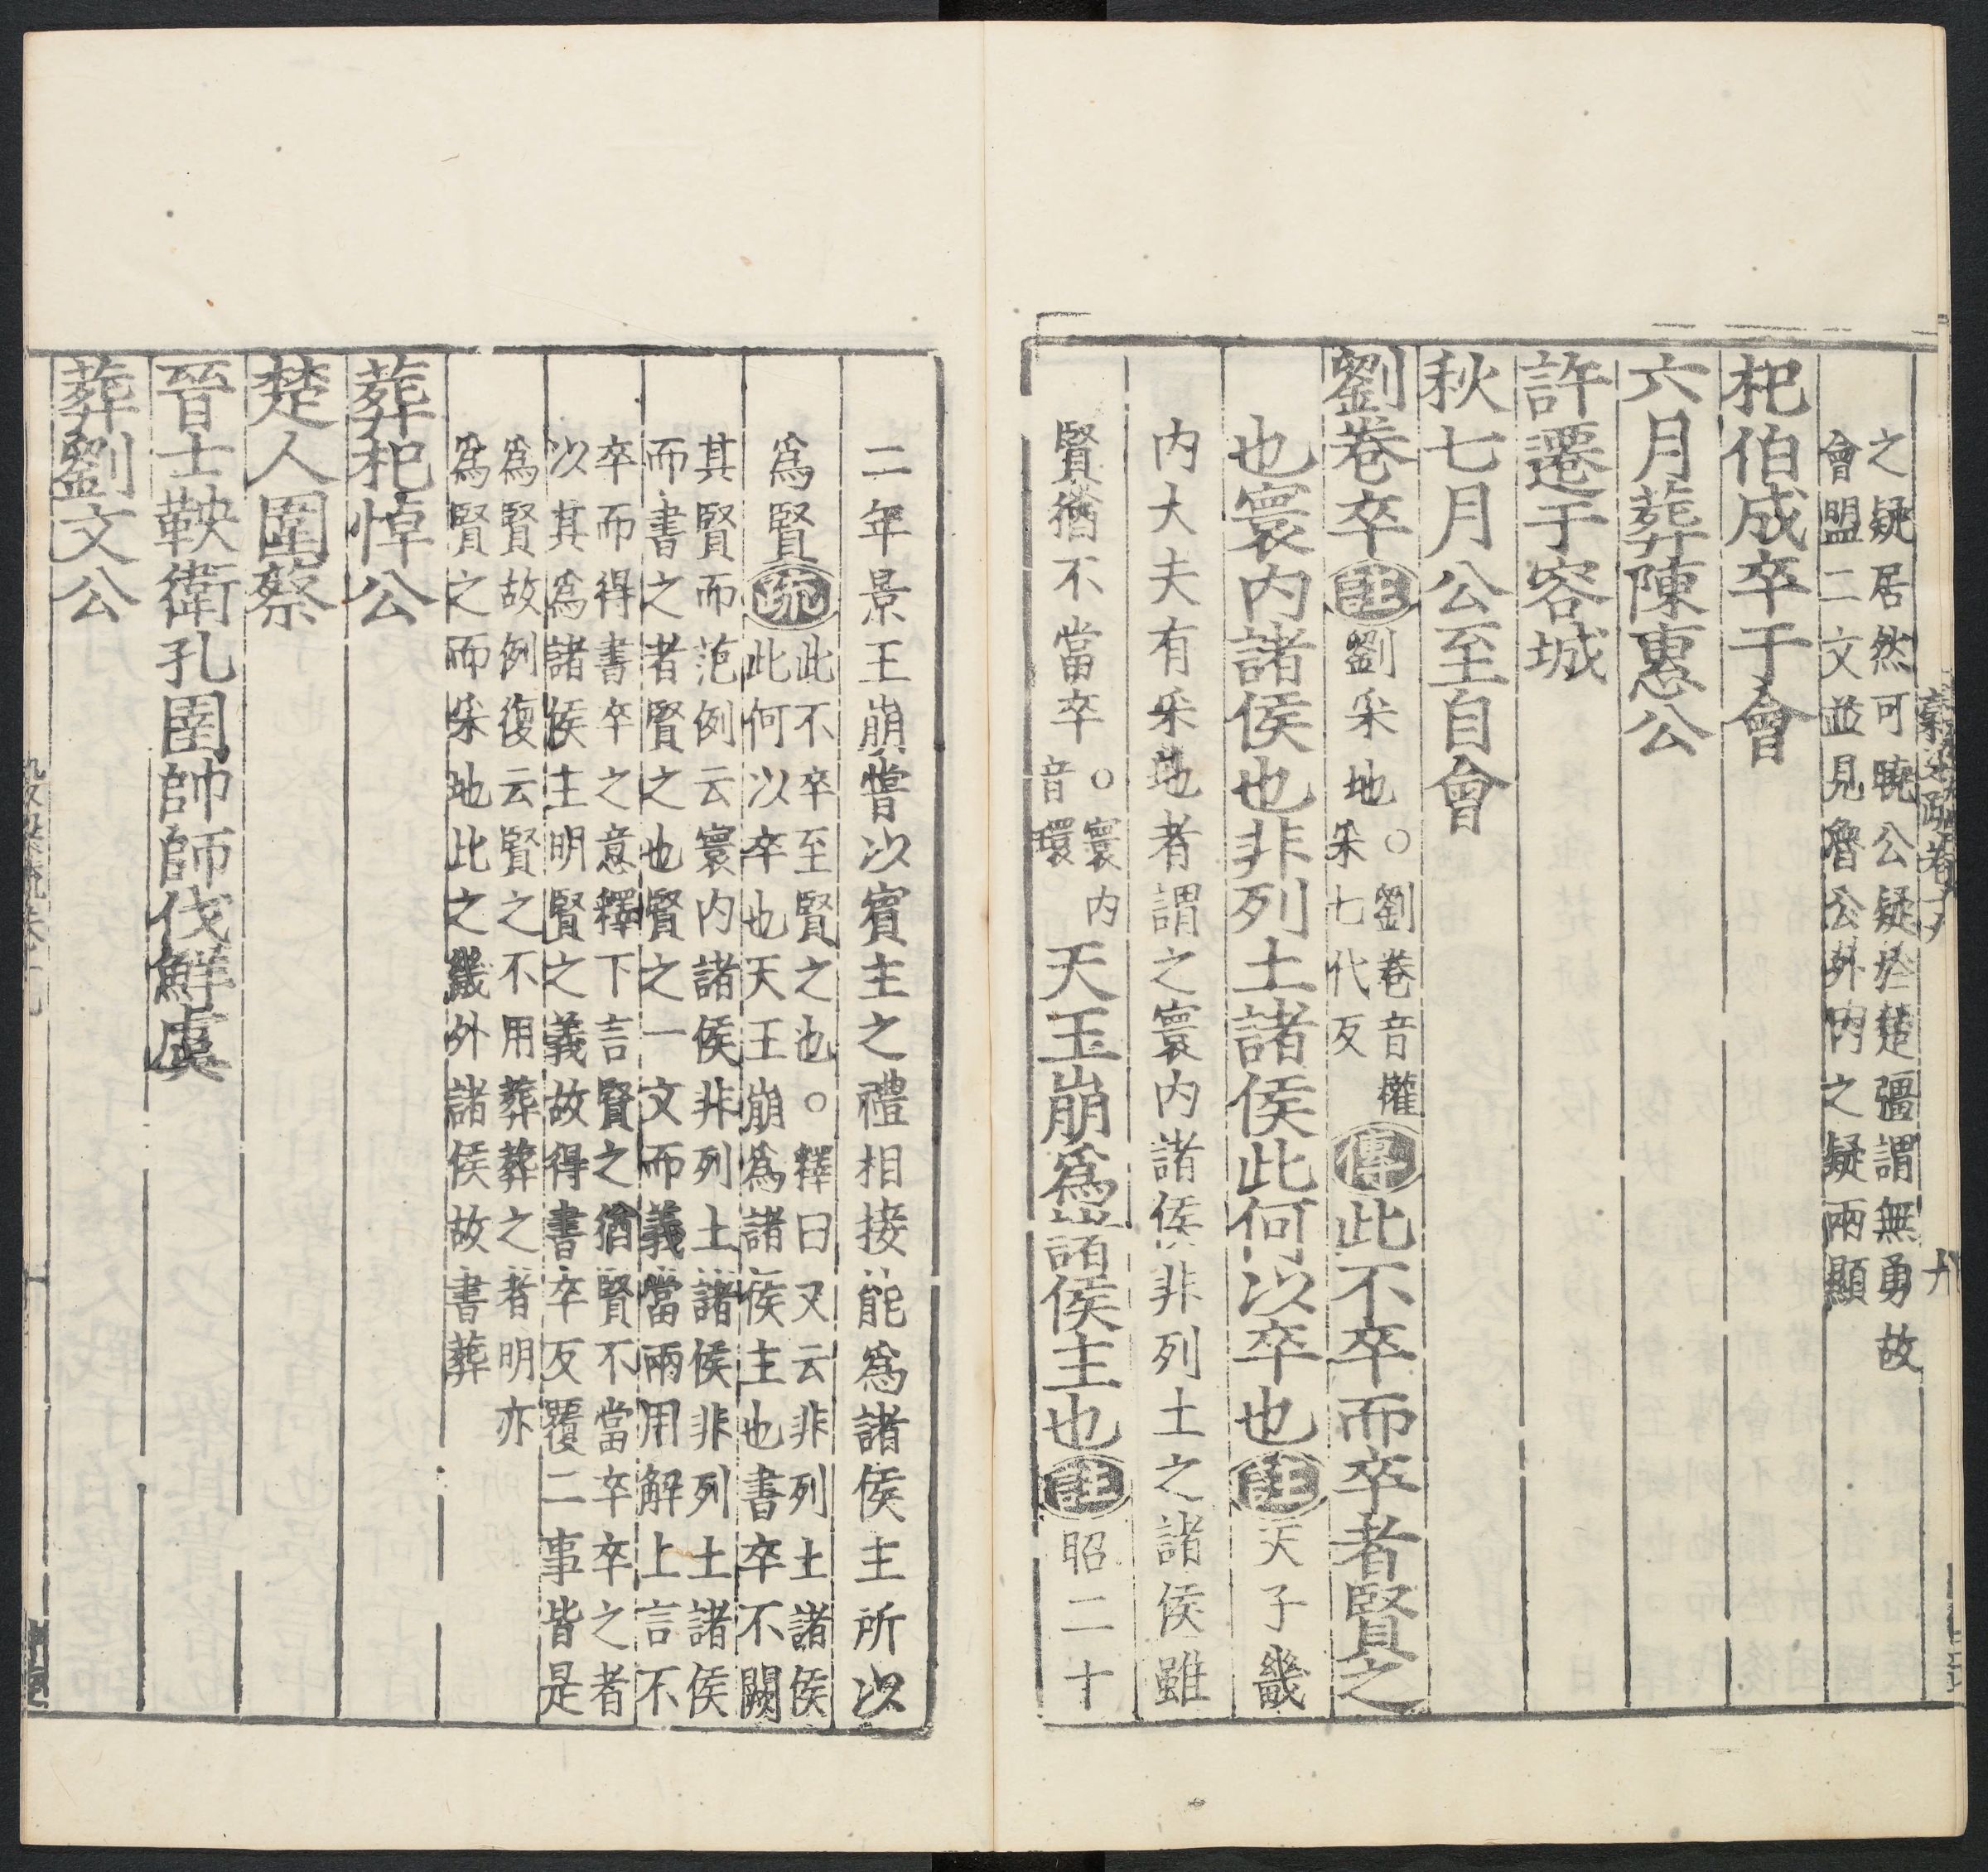 之疑居然可曉公疑於楚彊謂無勇故
會盟二文並見魯公外内之疑兩顯
杞伯成卒于會
六月葬陳惠公
許遷于容城
秋七月公至自會
劉卷卒註劉采地○劉卷音權
采七代反傳此不卒而卒者賢之
也寰内諸侯也非列土諸侯此何以卒也註天子畿
内大夫有采地者謂之寰内諸侯非列土之諸侯雖
賢猶不當卒○寰内
音環天王崩爲諸侯主也註昭二十
二年景王崩嘗以賓主之禮相接能爲諸侯主所以
爲賢疏此不卒至賢之也○釋曰又云非列土諸侯
此何以卒也天王崩爲諸侯主也書卒不闕
其賢而范例云寰内諸侯非列土諸侯非列土諸侯
而書之者賢之也賢之一文而義當兩用解上言不
卒而得書卒之意釋下言賢之猶賢不當卒卒之者
以其爲諸侯主明賢之義故得書卒反覆二事皆是
爲賢故例復云賢之不用葬葬之者明亦
爲賢之而采地此之畿外諸侯故書葬
葬杞悼公
楚人圍蔡
晉士鞅衛孔圉帥師伐鮮虞
葬劉文公